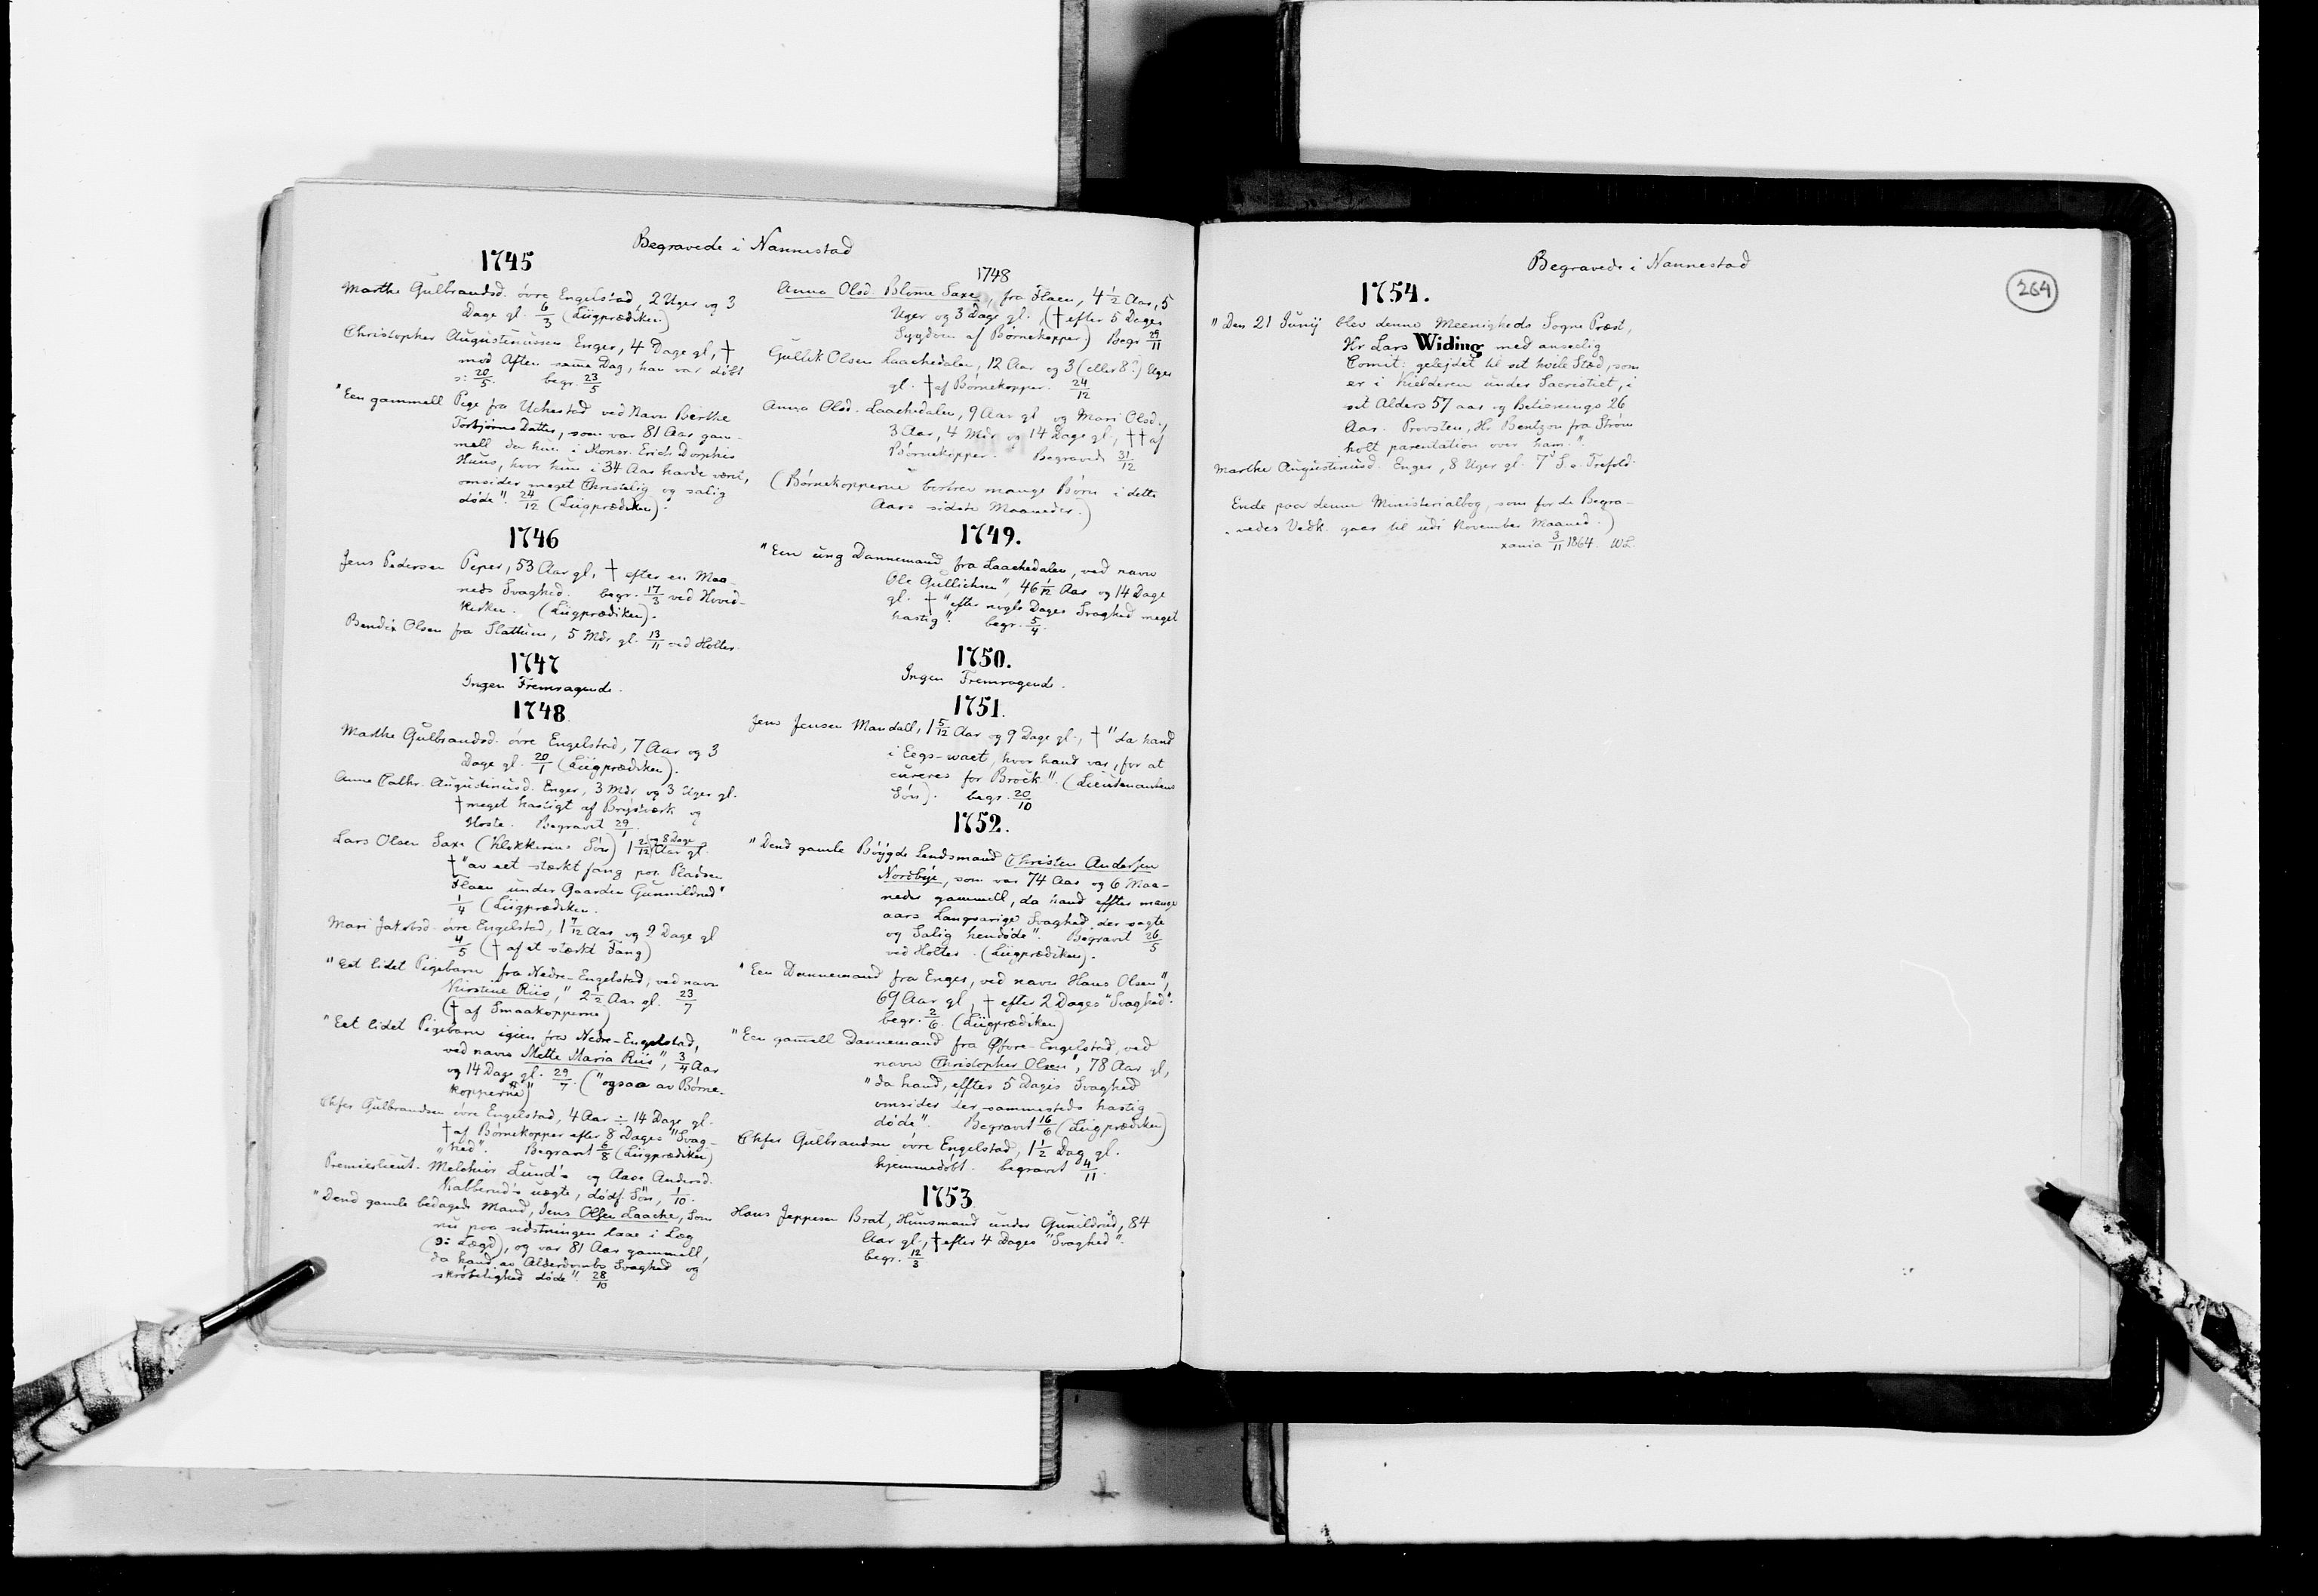 Begravede i Nannestad
1745
Marthe Gulbrandsd. øvre Engelstad, 2 Uger og 3
Dage gl. 6/3 (Liigprædiken)
Christopher Augustinussen Enger, 4 Dage gl, †
mod Aften samme Dag, han var døbt
ɔ: 20/5. begr. 23/5
"Een gammell Pige fra Uchestad ved Navn Berthe
Torbjørns Datter, som var 81 Aar gam-
mell da hun i Monsr. Erich Dorphs
Huus, hvor hun i 34 Aar havde været,
omsider meget Christelig og salig
døde". 24/12 (Liigprædiken).
1746
Jens Pedersen Peper, 53 Aar gl, † efter en Maa-
neds Svaghed. begr. 17/3 ved Hoved-
kirken. (Liigprædiken).
Bendix Olsen fra Slattum, 5 Mdr gl. 13/11 ved Holter.
1747
Ingen Fremragende.
1748.
Marthe Gulbrandsd. øvre Engelstad, 7 Aar og 3
Dage gl. 20/1 (Liigprædiken).
Anne Cathr. Augustinusd. Enger, 3 Mdr og 3 Uger gl.
† meget hastigt af Brystværk og
Hoste. Begravet 29/1.
Lars Olsen Saxe (Klokkerens Søn) 1 2/12 Aar og 8 Dage gl.
† "av eet stærkt fang paa Pladsen
Flaen under Gaarden Gunnildrud"
1/4 (Liigprædiken.
Mari Jakobsd. øvre Engelstad, 1 7/12 Aar og 2 Dage gl
4/5 († af et stærkt Fang)
"Eet lidet Pigebarn fra Nedre-Engelstad, ved navn
Kirstine Riis," 2 1/2 Aar gl. 23/7
(† af Smaakopperne)
"Eet lidet Pigebarn igien fra Nedre-Engelstad,
ved navn Mette Maria Riis", 3/4 Aar
og 14 Dage gl. 29/7. ("ogsaa av Børne-
kopperne")
Chfer Gulbrandsen øvre Engelstad, 4 Aar ÷ 14 Dage gl.
† af Børnekopper efter 8 Dages "Svag-
hed". Begravet 6/8 (Liigprædiken)
Premierlieut. Melchior Lund's og Aase Andersd.
Kabberud's uægte, dødf. Søn, 1/10.
"Dend gamle bedagede Mand, Jens Olsen Laache, som
nu paa sidstningen laae i Læg
(ɔ: Lægd), og var 81 Aar gammell,
da hand av Alderdoms Svaghed og
skrøbelighed døde". 28/10
1748
Anna Olsd. Blome Saxe, fra Flaen, 4 1/2 Aar, 5
Uger og 3 Dage gl. († efter 5 Dages
Sygdom af Børnekopper) Begr 29/11
Gullik Olsen Laachedalen, 12 Aar og 3 (eller 8?) Uger
gl. † af Børnekopper. 24/12
Anna Olsd. Laachedalen, 9 Aar gl og Mari Olsd.,
3 Aar, 4 Mdr og 14 Dage gl, †† af
Børnekopper. Begravede 31/12
(Børnekopperne bortrev mange Børn i dette
Aars sidste Maaneder.)
1749.
"Een ung Dannemand fra Laachedalen, ved navn
Ole Gullichsen", 46 1/2 Aar og 14 Dage
gl. † "efter nogle Dages Svaghed meget
hastig". begr. 5/4.
1750.
Ingen Fremragende.
1751.
Jens Jensen Mandall, 1 5/12 Aar og 9 Dage gl., † "da hand
i Eegs-waet, hvor hand var, for at
cureres for Brock". (Lieutenantens
Søn). begr. 20/10
1752.
"Dend gamle Bøygde Lendsmand Christen Andersen
Nordbye, som var 74 Aar og 6 Maa-
neder gammell, da hand effter mange
aars Langvarige Svaghed der sagte
og Salig hendøde". Begravet 26/5
ved Holter. (Liigprædiken).
"Een Dannemand fra Enger, ved navn Hans Olsen",
69 Aar gl, † efter 2 Dages "Svaghed".
begr. 2/6. (Liigprædiken)
"Een gamell Dannemand fra Øfvre-Engelstad, ved
navn Christopher Olsen", 78 Aar gl,
"da hand, effter 5 Dages Svaghed
omsider der sammesteds hastig
døde". Begravet 16/6 (Liigprædiken)
Chfer Gulbrandsen øvre Engelstad, 1 1/2 Dag gl.
hjemmedøbt. begravet 4/11.
1753
Hans Jeppesen Brat, Huusmand under Gunildrud, 84
Aar gl., † efter 4 Dages "Svaghed".
begr. 12/3
Begravede i Nannestad
264
1754.
"Den 21 Junij blev denne Meenigheds Sogne Præst,
Hr Lars Widing med anseelig
Comit: gelejdet til sit hvile Sted, som
er i Kielderen under Sacrestiet, i
sit Alders 57 aar og Betienings 26
Aar. Provsten, Hr Bentzon fra Strøm
holt parentation over ham".
Marthe Augustinusd. Enger, 8 Uger gl. 7' S. e. Trefold.
Ende paa denne Ministerialbog, som for de Begra-
vedes Vedk. gaar til udi November Maaned.)
xania 3/11 1864. WL.